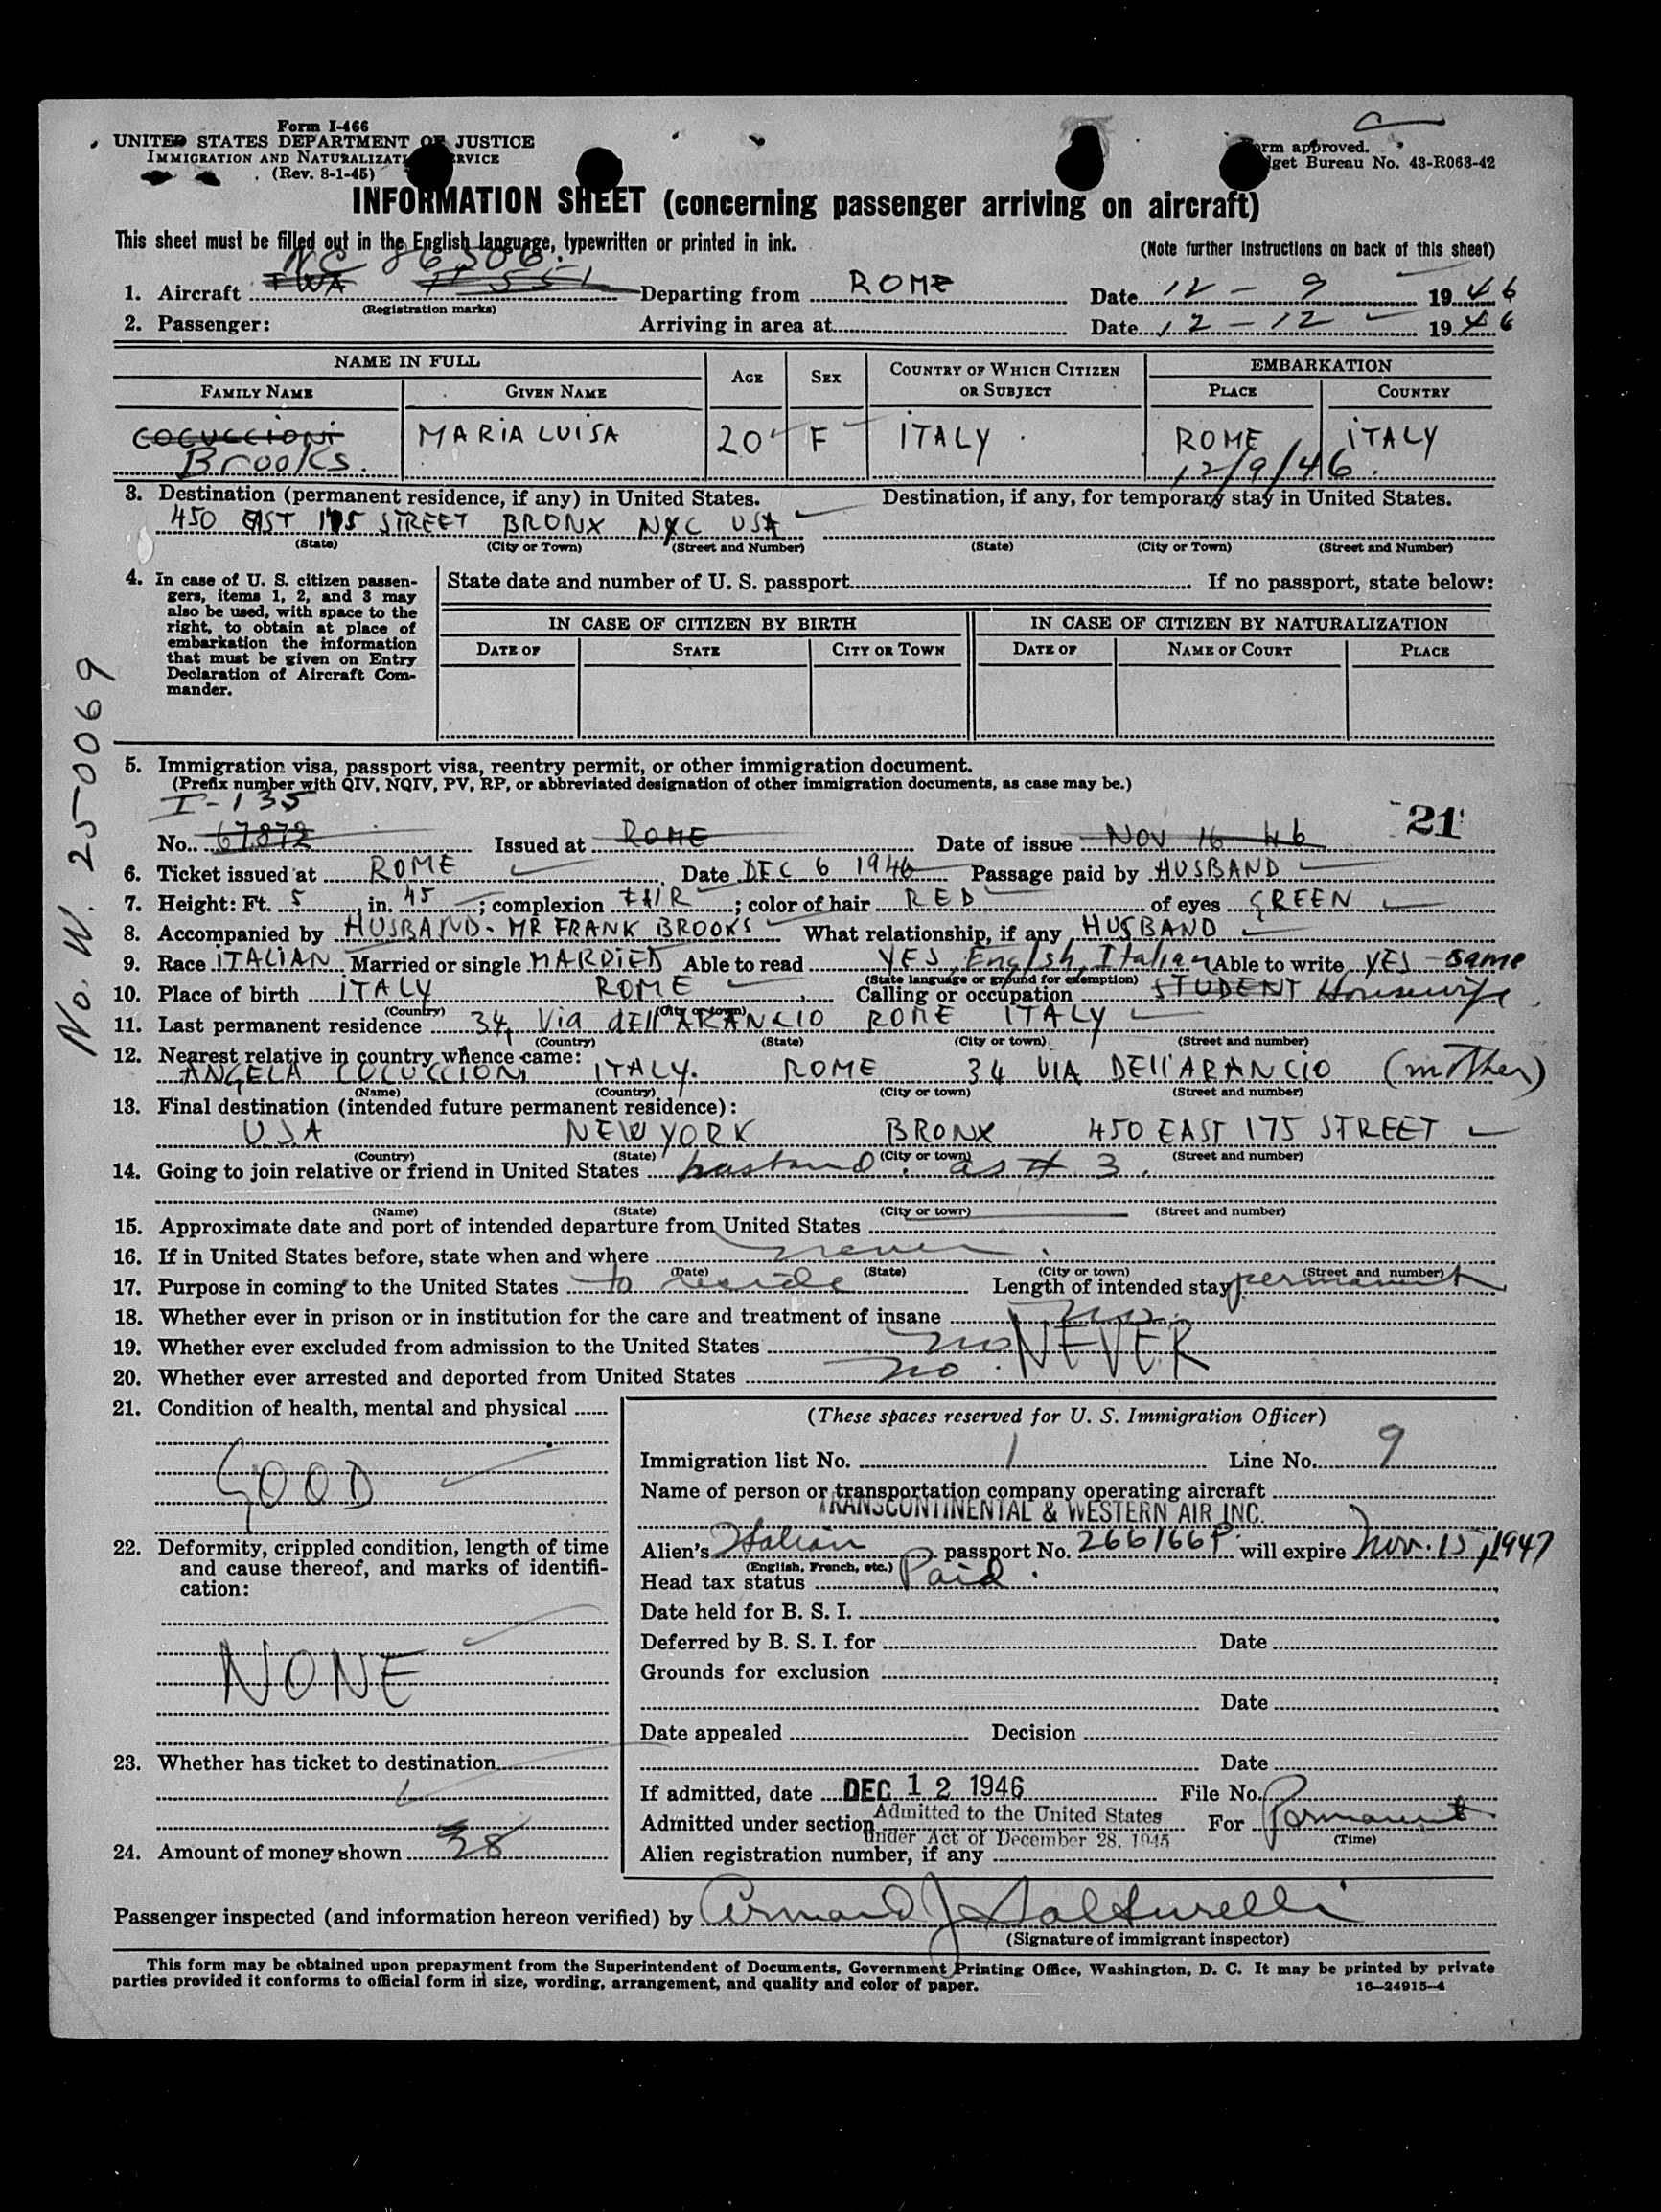 Form I-466
UNITED STATES DEPARTMENT OF JUSTICE
IMMIGRATION AND NATURALIZATI RVICE
(Rev. 8-1-45)
rm approved.
get Bureau No. 43-R063-42
INFORMATION SHEET (concerning passenger arriving on aircraft)
This sheet must be filled out in the English language, typewritten or printed in ink.
(Note further instructions on back of this sheet)
NC 86506
1. Aircraft TWA Departing from ROME Date 12 - 9 1946
(Registration marks)
2. Passenger: Arriving in area at Date 12 - 12 1946
NAME IN FULL AGE SEX COUNTRY OF WHICH CITIZEN OR SUBJECT EMBARKATION
FAMILY NAME GIVEN NAME PLACE COUNTRY
COCUCCIONI MARIA LUISA 20 F ITALY ROME ITALY
Brooks. 12/9/46.
3. Destination (permanent residence, if any) in United States. Destination, if any, for temporary stay in United States.
450 EAST 175 STREET BRONX NYC USA
(State) (City or Town) (Street and Number) (State) (City or Town) (Street and Number)
4. In case of U. S. citizen passen-
gers, items 1, 2, and 3 may
also be used, with space to the
right, to obtain at place of
embarkation the information
that must be given on Entry
Declaration of Aircraft Com-
mander.
State date and number of U. S. passport If no passport, state below:
IN CASE OF CITIZEN BY BIRTH IN CASE OF CITIZEN BY NATURALIZATION
DATE OF STATE CITY OR TOWN DATE OF NAME OF COURT PLACE
No. W. 250069
5. Immigration visa, passport visa, reentry permit, or other immigration document.
(Prefix number with QIV, NQIV, PV, RP, or abbreviated designation of other immigration documents, as case may be.)
I-135
21
No. 67872 Issued at ROME Date of issue NOV 16 46
6. Ticket issued at ROME Date DEC 6 1946 Passage paid by HUSBAND
7. Height: Ft. 5 in. 45; complexion FAIR; color of hair RED of eyes GREEN
8. Accompanied by HUSBAND - MR FRANK BROOKS What relationship, if any HUSBAND
9. Race ITALIAN Married or single MARRIED Able to read YES, English, Italian Able to write YES - same
(State language or ground for exemption)
10. Place of birth ITALY ROME Calling or occupation STUDENT Housewife
(Country) (City or town)
11. Last permanent residence 34, Via dell'ARANCIO ROME ITALY
(Country) (State) (City or town) (Street and number)
12. Nearest relative in country whence came:
ANGELA COCUCCIONI ITALY. ROME 34 VIA DELL'ARANCIO (mother)
(Name) (Country) (City or town) (Street and number)
13. Final destination (intended future permanent residence):
USA NEW YORK BRONX 450 EAST 175 STREET
(Country) (State) (City or town) (Street and number)
14. Going to join relative or friend in United States husband. as # 3.
(Name) (State) (City or town) (Street and number)
15. Approximate date and port of intended departure from United States
16. If in United States before, state when and where never.
(Date) (State) (City or town) (Street and number)
17. Purpose in coming to the United States to reside Length of intended stay permanent
18. Whether ever in prison or in institution for the care and treatment of insane no.
19. Whether ever excluded from admission to the United States no NEVER
20. Whether ever arrested and deported from United States no.
21. Condition of health, mental and physical
GOOD
22. Deformity, crippled condition, length of time
and cause thereof, and marks of identifi-
cation:
NONE
23. Whether has ticket to destination
24. Amount of money shown 38
(These spaces reserved for U. S. Immigration Officer)
Immigration list No. 1 Line No. 9
Name of person or transportation company operating aircraft
TRANSCONTINENTAL & WESTERN AIR INC.
Alien's Italian passport No. 266166P. will expire Nov. 15, 1947
(English, French, etc.)
Head tax status Paid.
Date held for B. S. I.
Deferred by B. S. I. for Date
Grounds for exclusion
Date
Date appealed Decision
Date
If admitted, date DEC 12 1946 File No.
Admitted under section Admitted to the United States For Permanent
under Act of December 28, 1945 (Time)
Alien registration number, if any
Passenger inspected (and information hereon verified) by Armand J
(Signature of immigrant inspector)
This form may be obtained upon prepayment from the Superintendent of Documents, Government Printing Office, Washington, D. C. It may be printed by private
parties provided it conforms to official form in size, wording, arrangement, and quality and color of paper.
16—24915-4